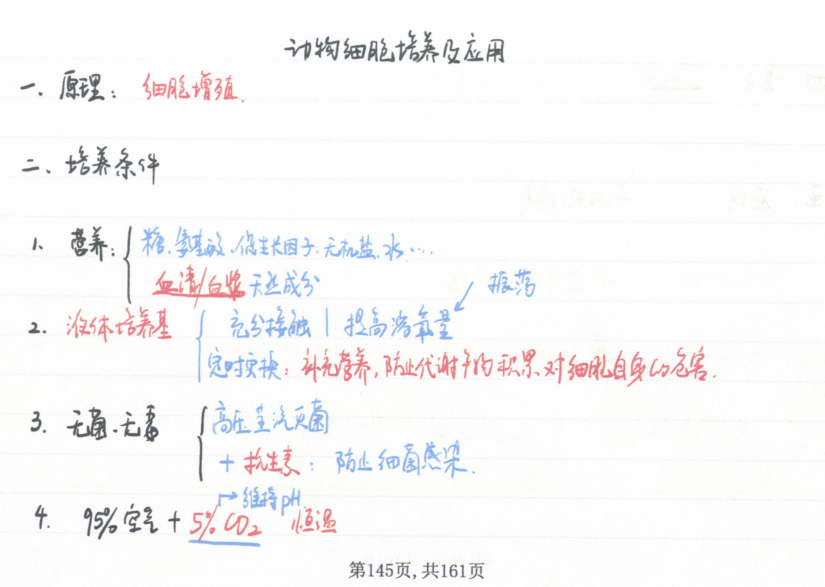 动物细胞培养及应用
一、原理：细胞增殖.
二、培养条件
1. 营养：{糖.氨基酸.促生长因子.无机盐.水…
血清/血浆 天然成分
振荡
2. 液体培养基 { 充分接触 | 提高溶氧量
定时更换：补充营养,防止代谢产物积累对细胞自身的危害.
3. 无菌.无毒 { 高压蒸汽灭菌
+ 抗生素：防止细菌感染.
→维持pH
4. 95%空气 + 5% CO2 恒温
第145页,共161页